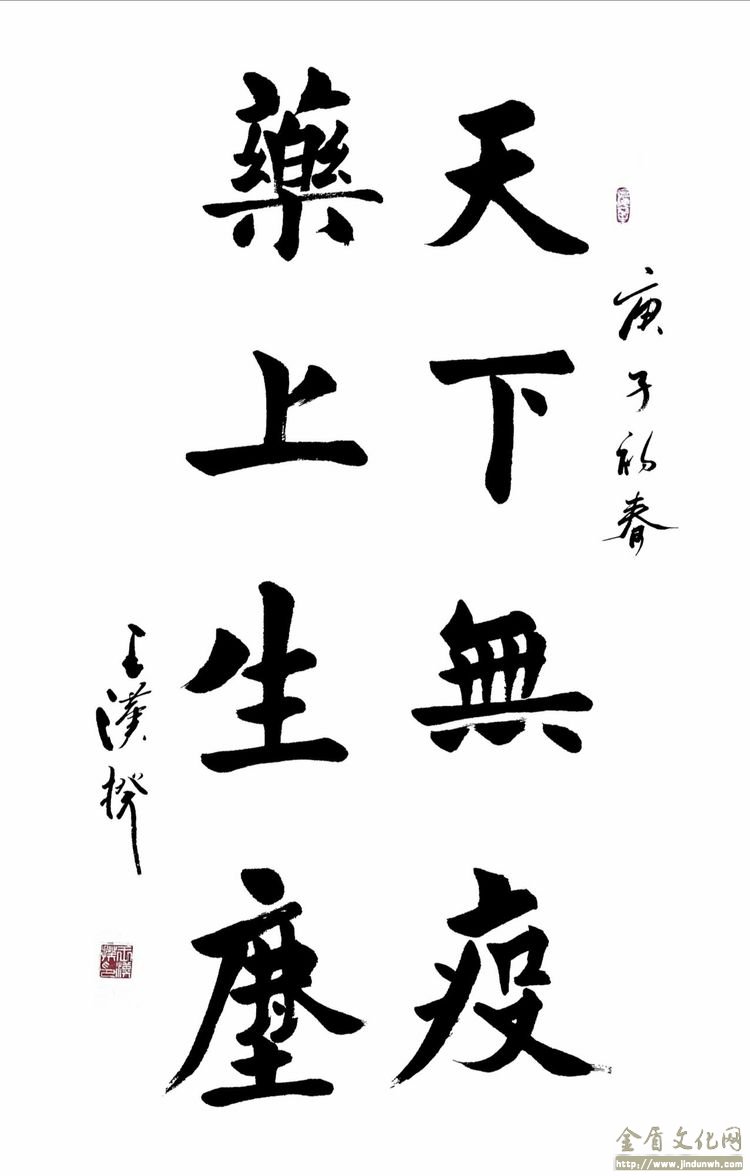 庚子初春
天下無疫
藥上生塵
王漢
金盾文化网
http://www.jindunwh.com